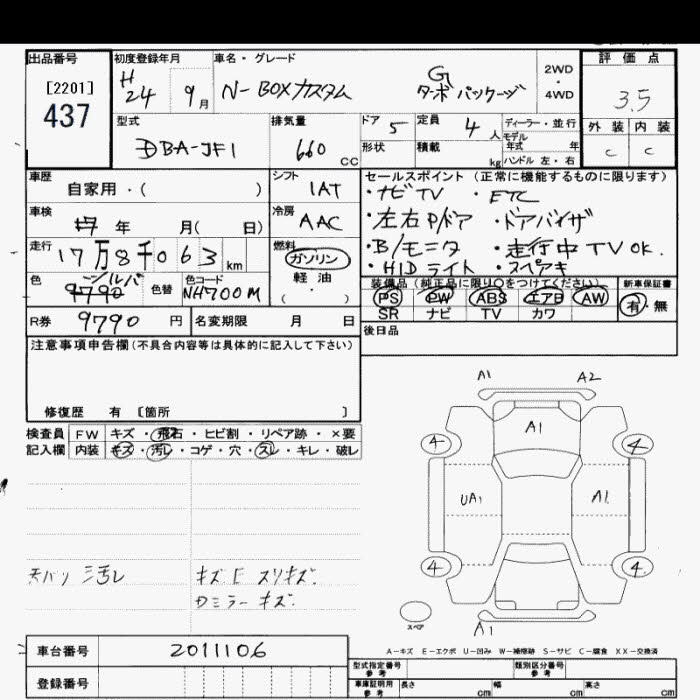 出品番号
[2201]
437
初度登録年月
H
24 9月
車名・グレード
N-BOXカスタム
G
ターボ パッケージ
2WD
・
4WD
評価点
3.5
外装 内装
C C
型式
DBA-JF1
排気量
660 CC
ドア 5
定員 4 人
形状
積載 kg
ディーラー・並行
モデル
年式 年
ハンドル 左・右
車歴
自家用・( )
シフト
IAT
車検
年 月( 日)
冷房
AAC
走行
17万8千063 km
燃料
ガソリン
軽油
( ・ )
色
シルバ
9790
色替
色コード
NH700M
R券 9790 円
名変期限 月 日
セールスポイント(正常に機能するものに限ります)
・ナビTV ・ETC
・左右Pドア ・ドアバイザ
・B/モニタ ・走行中TV OK.
・HIDライト ・スペアキ
装備品(純正品に限り○をつけてください)
PS PW ABS エアB AW
SR ナビ TV カワ
新車保証書
有・無
後日品
注意事項申告欄(不具合内容等は具体的に記入して下さい)
修復歴 有 [箇所 ]
検査員 FW キズ・飛石・ヒビ割・リペア跡・×要
記入欄 内装 キズ・汚レ・コゲ・穴・スレ・キレ・破レ
天バリ 汚レ
キズE スリキズ.
ミラー キズ.
A1 A2
A1
4 4
UA1 A1
4 4
スペア
A1
A-キズ E-エクボ U-凹み W-補修跡 S-サビ C-腐食 XX-交換済
車台番号 2011106
登録番号
型式指定番号
参考
類別区分番号
参考
車庫証明用
参考
長さ cm 幅 cm 高さ cm